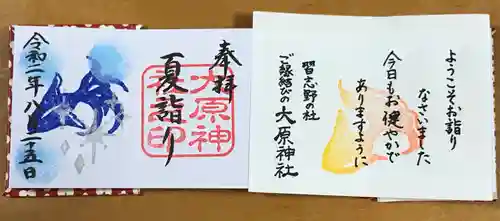 ようこそお詣り
なさいました
今日もお健やかで
ありますように
習志野の社
ご縁結びの大原神社
奉拝
夏詣り
大原神社
夏詣印
令和二年八月二十五日